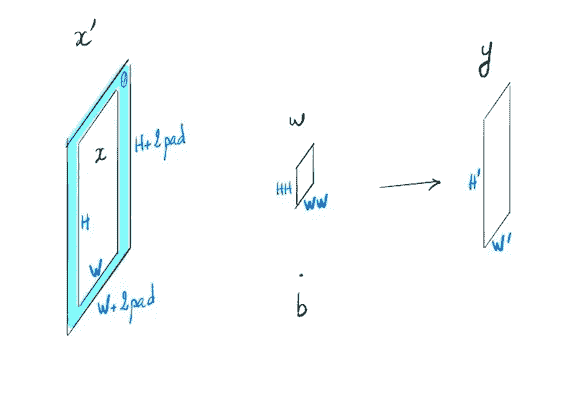 x'
0
x
H+2pad
H
W
W+2pad
w
HH
WW
b
y
H'
W'